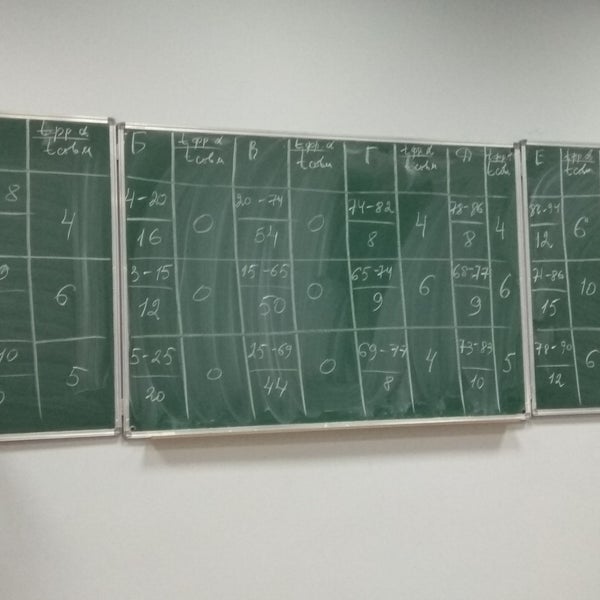 Б В Г Д Е
8 4 4-20 0 20-74 0 74-82 4 78-86 4 82-94 6
16 54 8 8 12
9 6 3-15 0 15-65 0 65-74 6 68-77 6 71-86 10
12 50 9 9 15
10 5 5-25 0 25-69 0 69-77 4 73-83 5 78-90 6
20 44 8 10 12